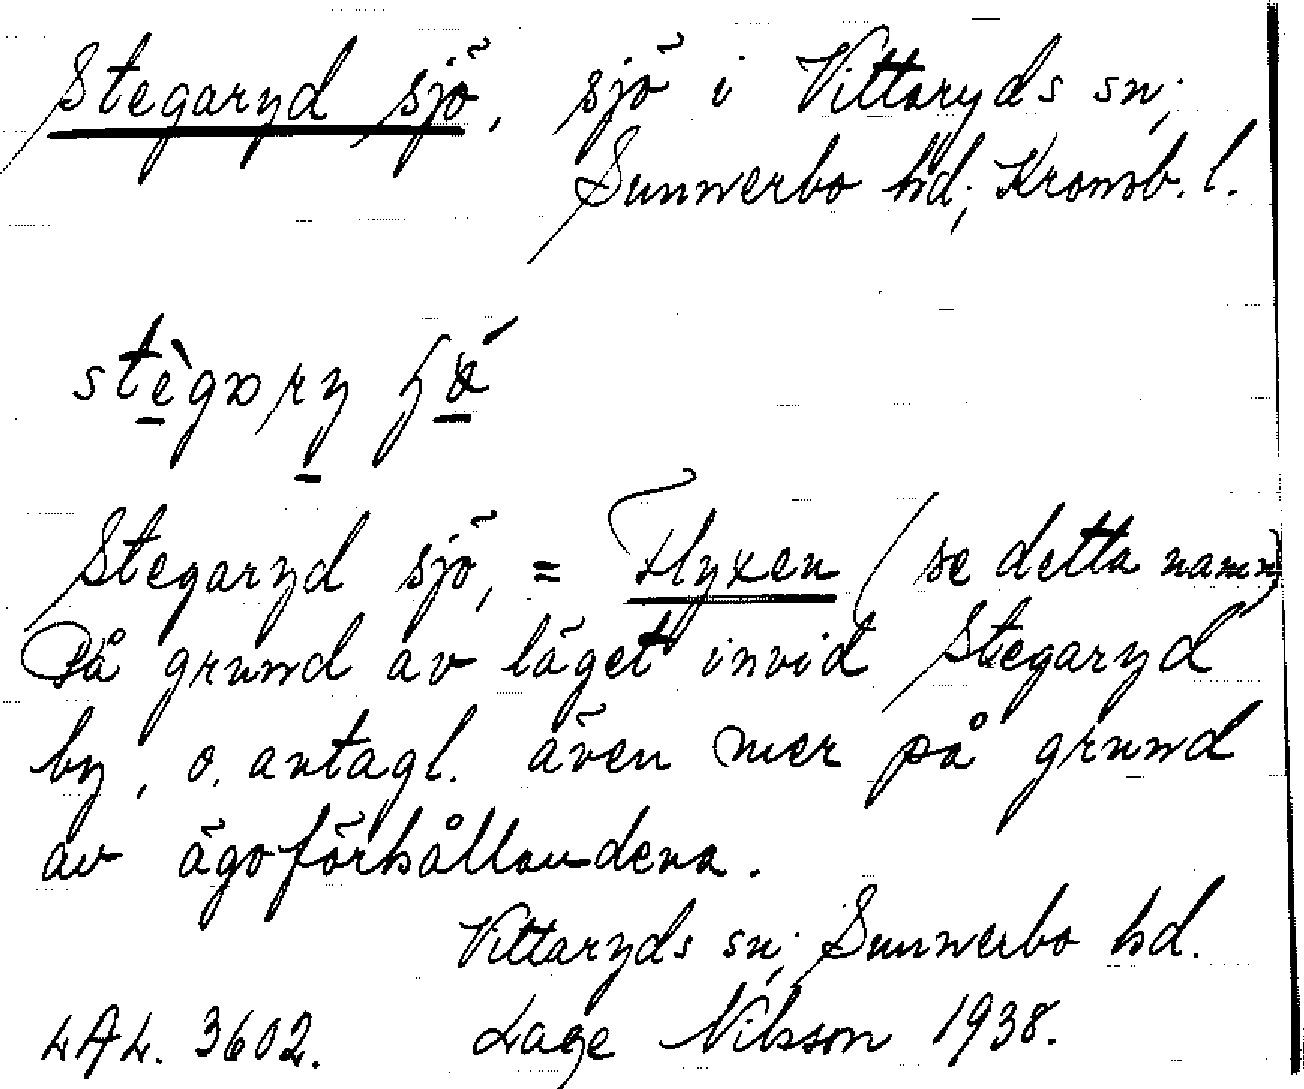 Stegaryd sjö, sjö i Vittaryds sn;
Sunnerbo hd; Kronob. l.
Stegaryd sjö, = Flyxen (se detta namn)
På grund av läget invid Stegaryd
by, o. antagl. även mer på grund
av ägoförhållandena.
Vittaryds sn; Sunnerbo hd.
LAL. 3602. Lage Nilsson 1938.